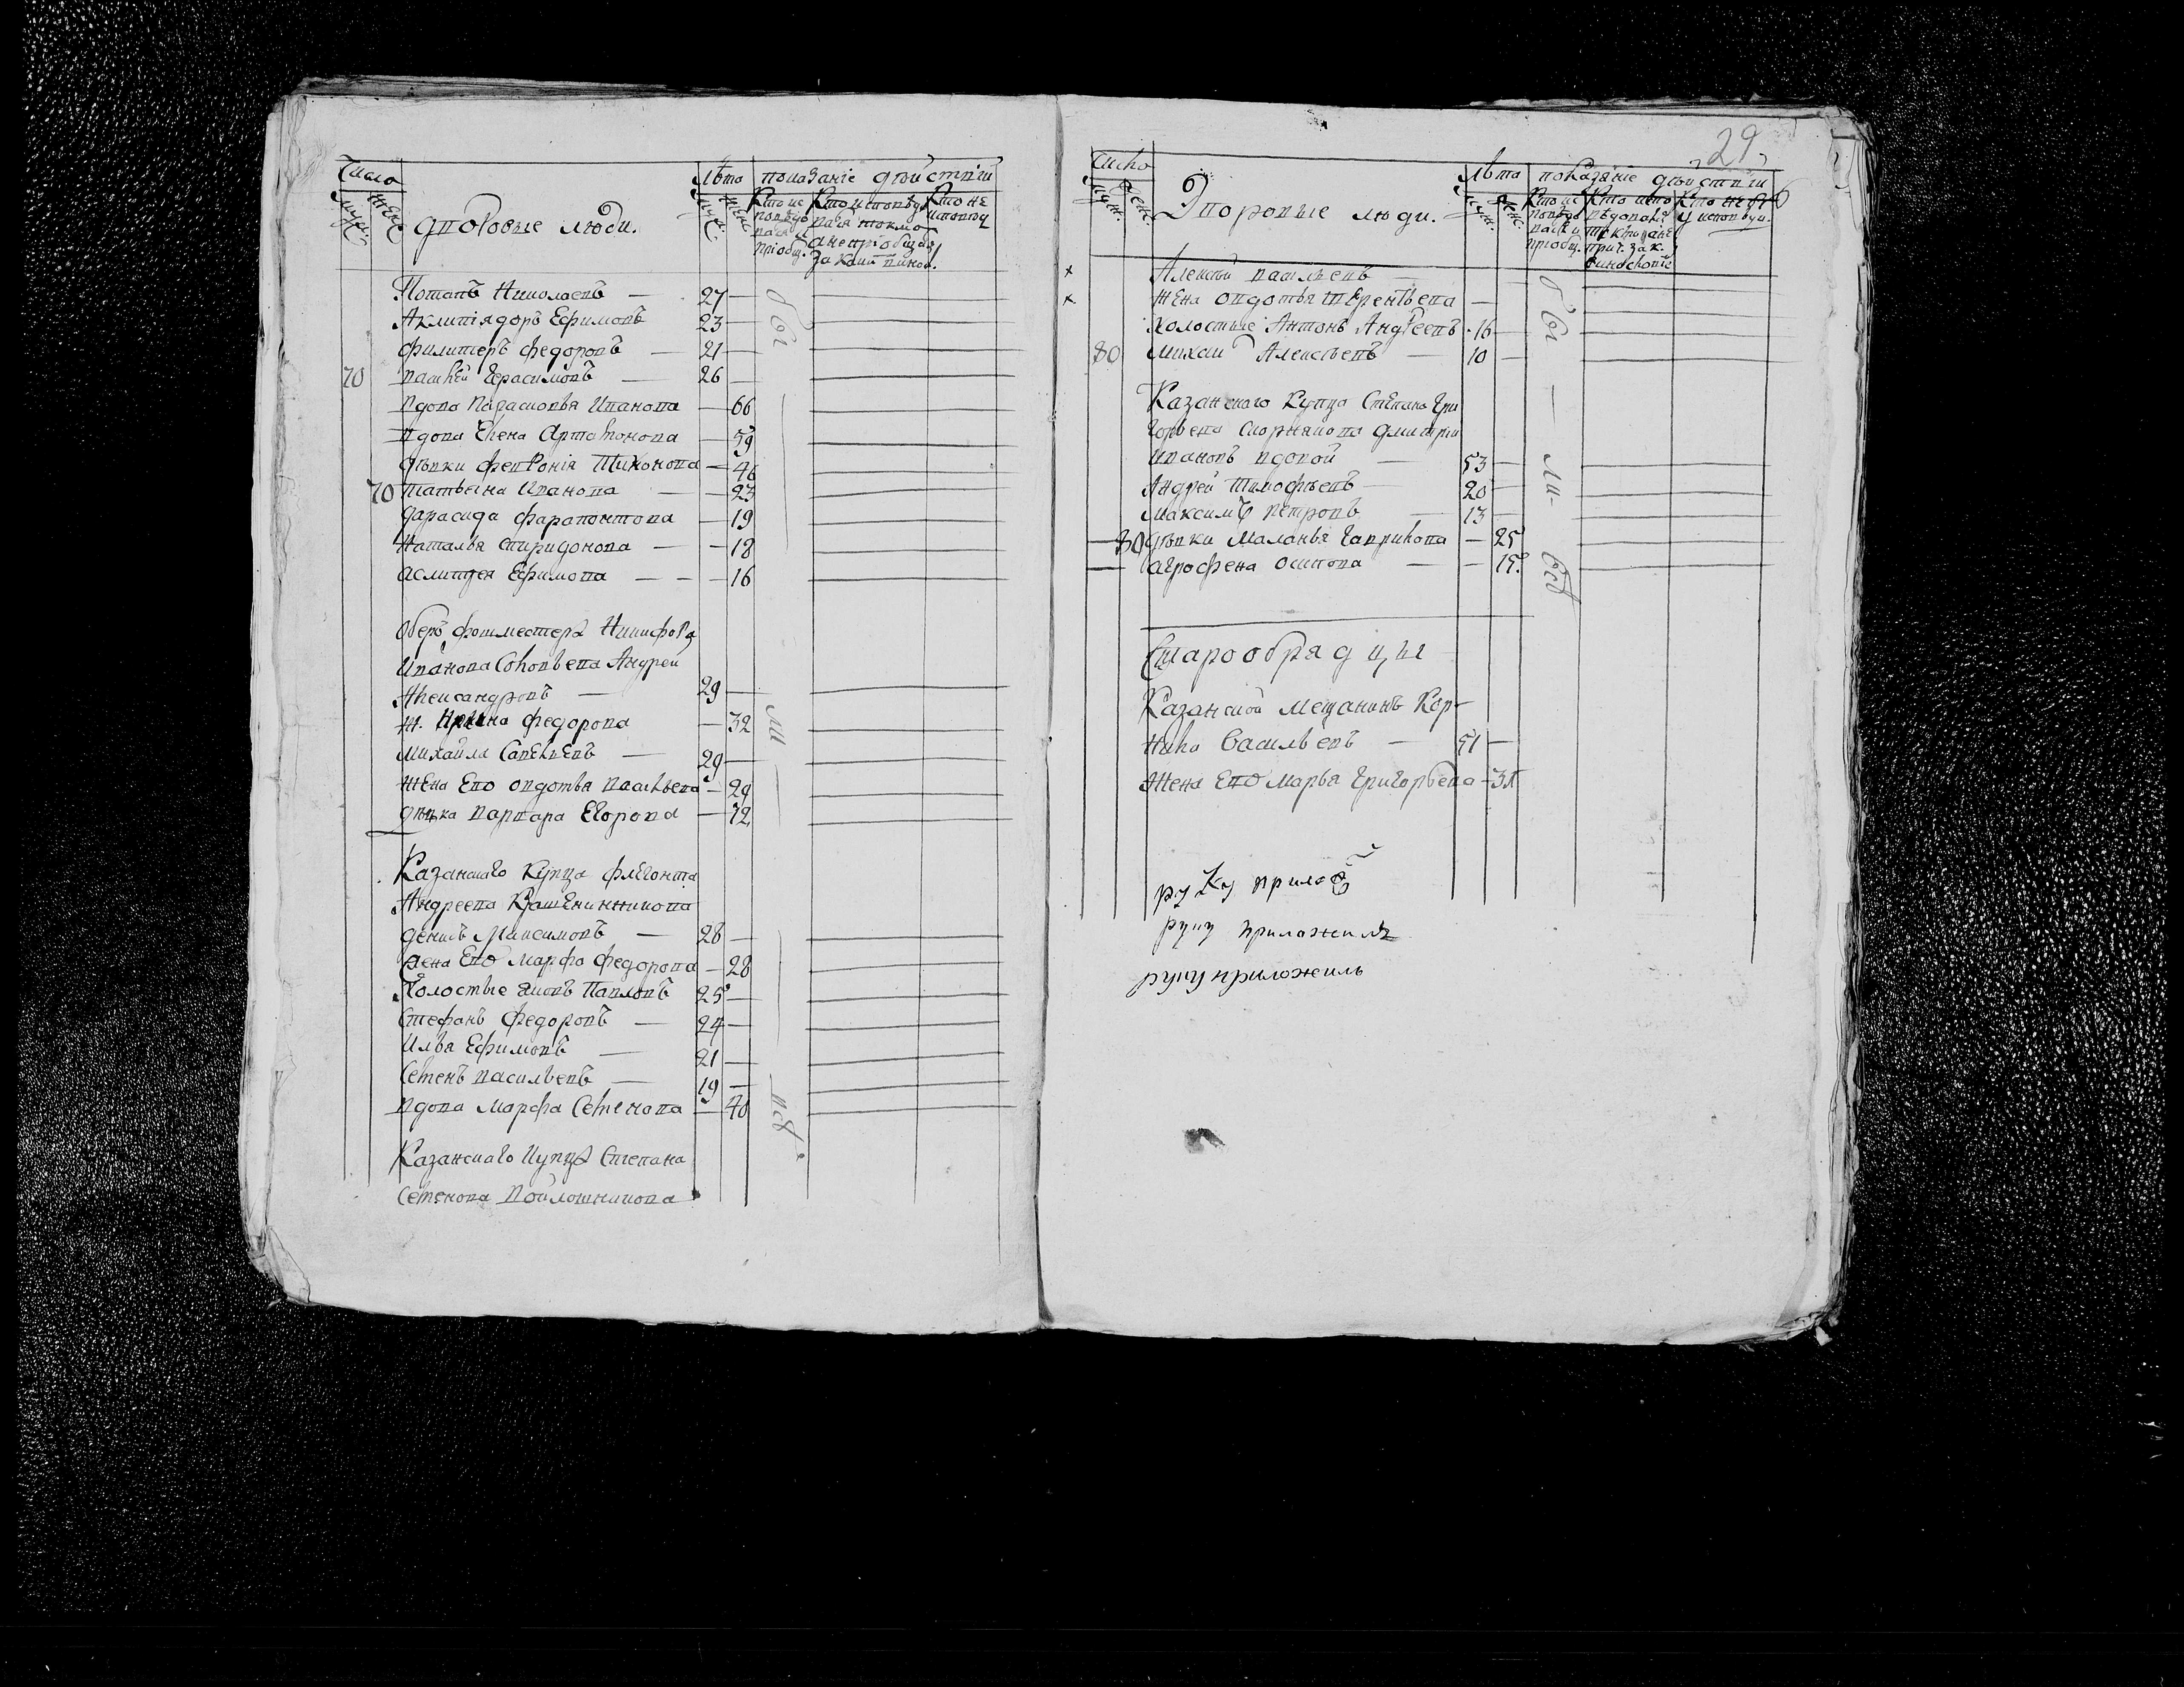 Число
Лѣто
показаніе действіи
муж.
жен.
дворовые люди.
муж.
жен.
Кто ис
повѣдо
вался и
пріобщ.
Кто исповѣд
вался токмо
а не пріобщался
за каит виною.
Кто не
исповѣд
Потапъ Николаевъ — 27 —
Аклитіядоръ Ефимовъ 23 —
филитеръ федоровъ — 21 —
70 василей Герасимовъ — 26 —
вдова Парасковья Иванова — 66
вдова Елена Артамонова — 59
дѣвки февронія Тихонова — 46
70 татьяна Иванова — — 23
дарасида фарапонтова — 19
Наталья спиридонова — — 18
Ефимова — — — 16
Оберъ форшместера Никифора
Иванова Соловьева Андрей
Александровъ — 29 —
ж. Ирина федорова — 32
михайла Савельевъ — 29 —
жена Ево овдотья васильева — 29
дѣвка варвара Егорова — 12
Казанскаго Купца флегонта
Андреева Крашенинникова
денисъ Максимовъ — 28 —
жена Ево Марфа федорова — 28
Холостые яковъ Павловъ 25 —
Стефанъ Федоровъ — 24 —
Илья Ефимовъ — 21 —
Семенъ васильевъ — 19 —
вдова марфа Семенова — 40
Казанскаго купца Степана
Семенова войлошникова
бы
ли
всѣ
29
Число
Лѣто
показаніе действіи
муж.
жен.
Дворовые люди.
муж.
жен.
Кто ис
повѣдо
вался и
пріобщ.
Кто испо
вѣдовался
прич. зак.
виносковіе
Кто не бы
у исповѣди.
× Алексѣй васильевъ —
× жена овдотья терентьева —
холостые Антонъ Андреевъ 16 —
80 михаил Алексѣевъ — 10 —
Казанскаго Купца Степана Гри
горьева Скорнякова дмитрій
Ивановъ вдовой — 53 —
Андрей тимофѣевъ — 20 —
максимъ петровъ — 13 —
80 дѣвки Маланья Гаврилова — 25
агрофена осипова — — 15
бы
ли
всѣ
Старообрядцы
Казанской мещанинъ Кор-
нила Васильевъ — 51 —
Жена Ево марья Григорьева — 31
руку прилож
руку приложилъ
руку приложилъ